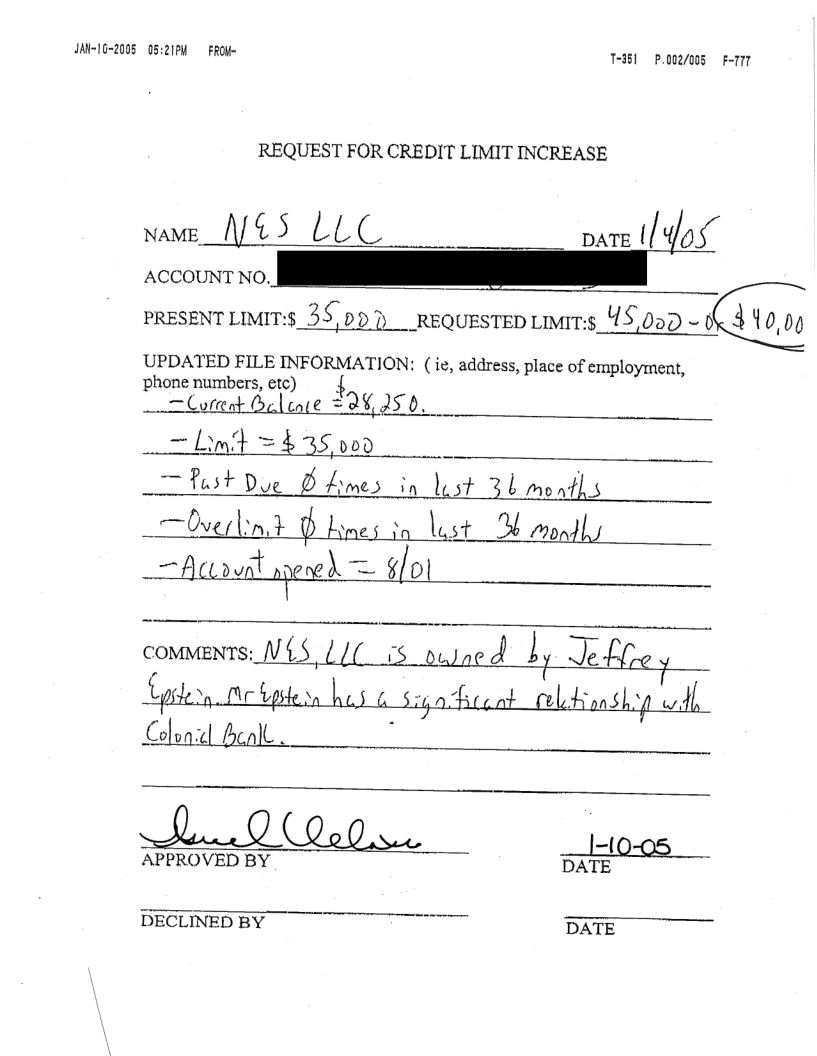 JAN-10-2005 05:21PM FROM- T-351 P.002/005 F-777
REQUEST FOR CREDIT LIMIT INCREASE
NAME N&S LLC DATE 1/4/05
ACCOUNT NO.
PRESENT LIMIT:$ 35,000 REQUESTED LIMIT:$ 45,000 - or $40,00
UPDATED FILE INFORMATION: ( ie, address, place of employment,
phone numbers, etc)
- Current Balance = $28,250.
- Limit = $ 35,000
- Past Due Ø times in last 36 months
- Overlimit Ø times in last 36 months
- Account opened = 8/01
COMMENTS: N&S, LLC is owned by Jeffrey
Epstein. Mr Epstein has a significant relationship with
Colonial Bank.
APPROVED BY 1-10-05
DATE
DECLINED BY
DATE